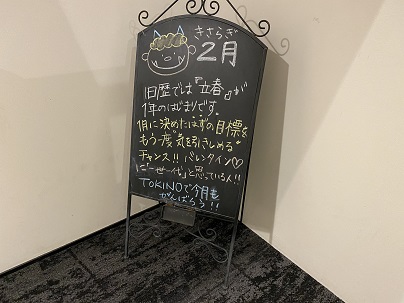 きさらぎ
2月
旧暦では『立春』が
1年のはじまりです。
1月に決めたはずの目標を
もう一度"気を引きしめる"
チャンス!! バレンタイン♡
に"一世一代"と思っている人!!
TOKINOで今月も
がんばろう!!